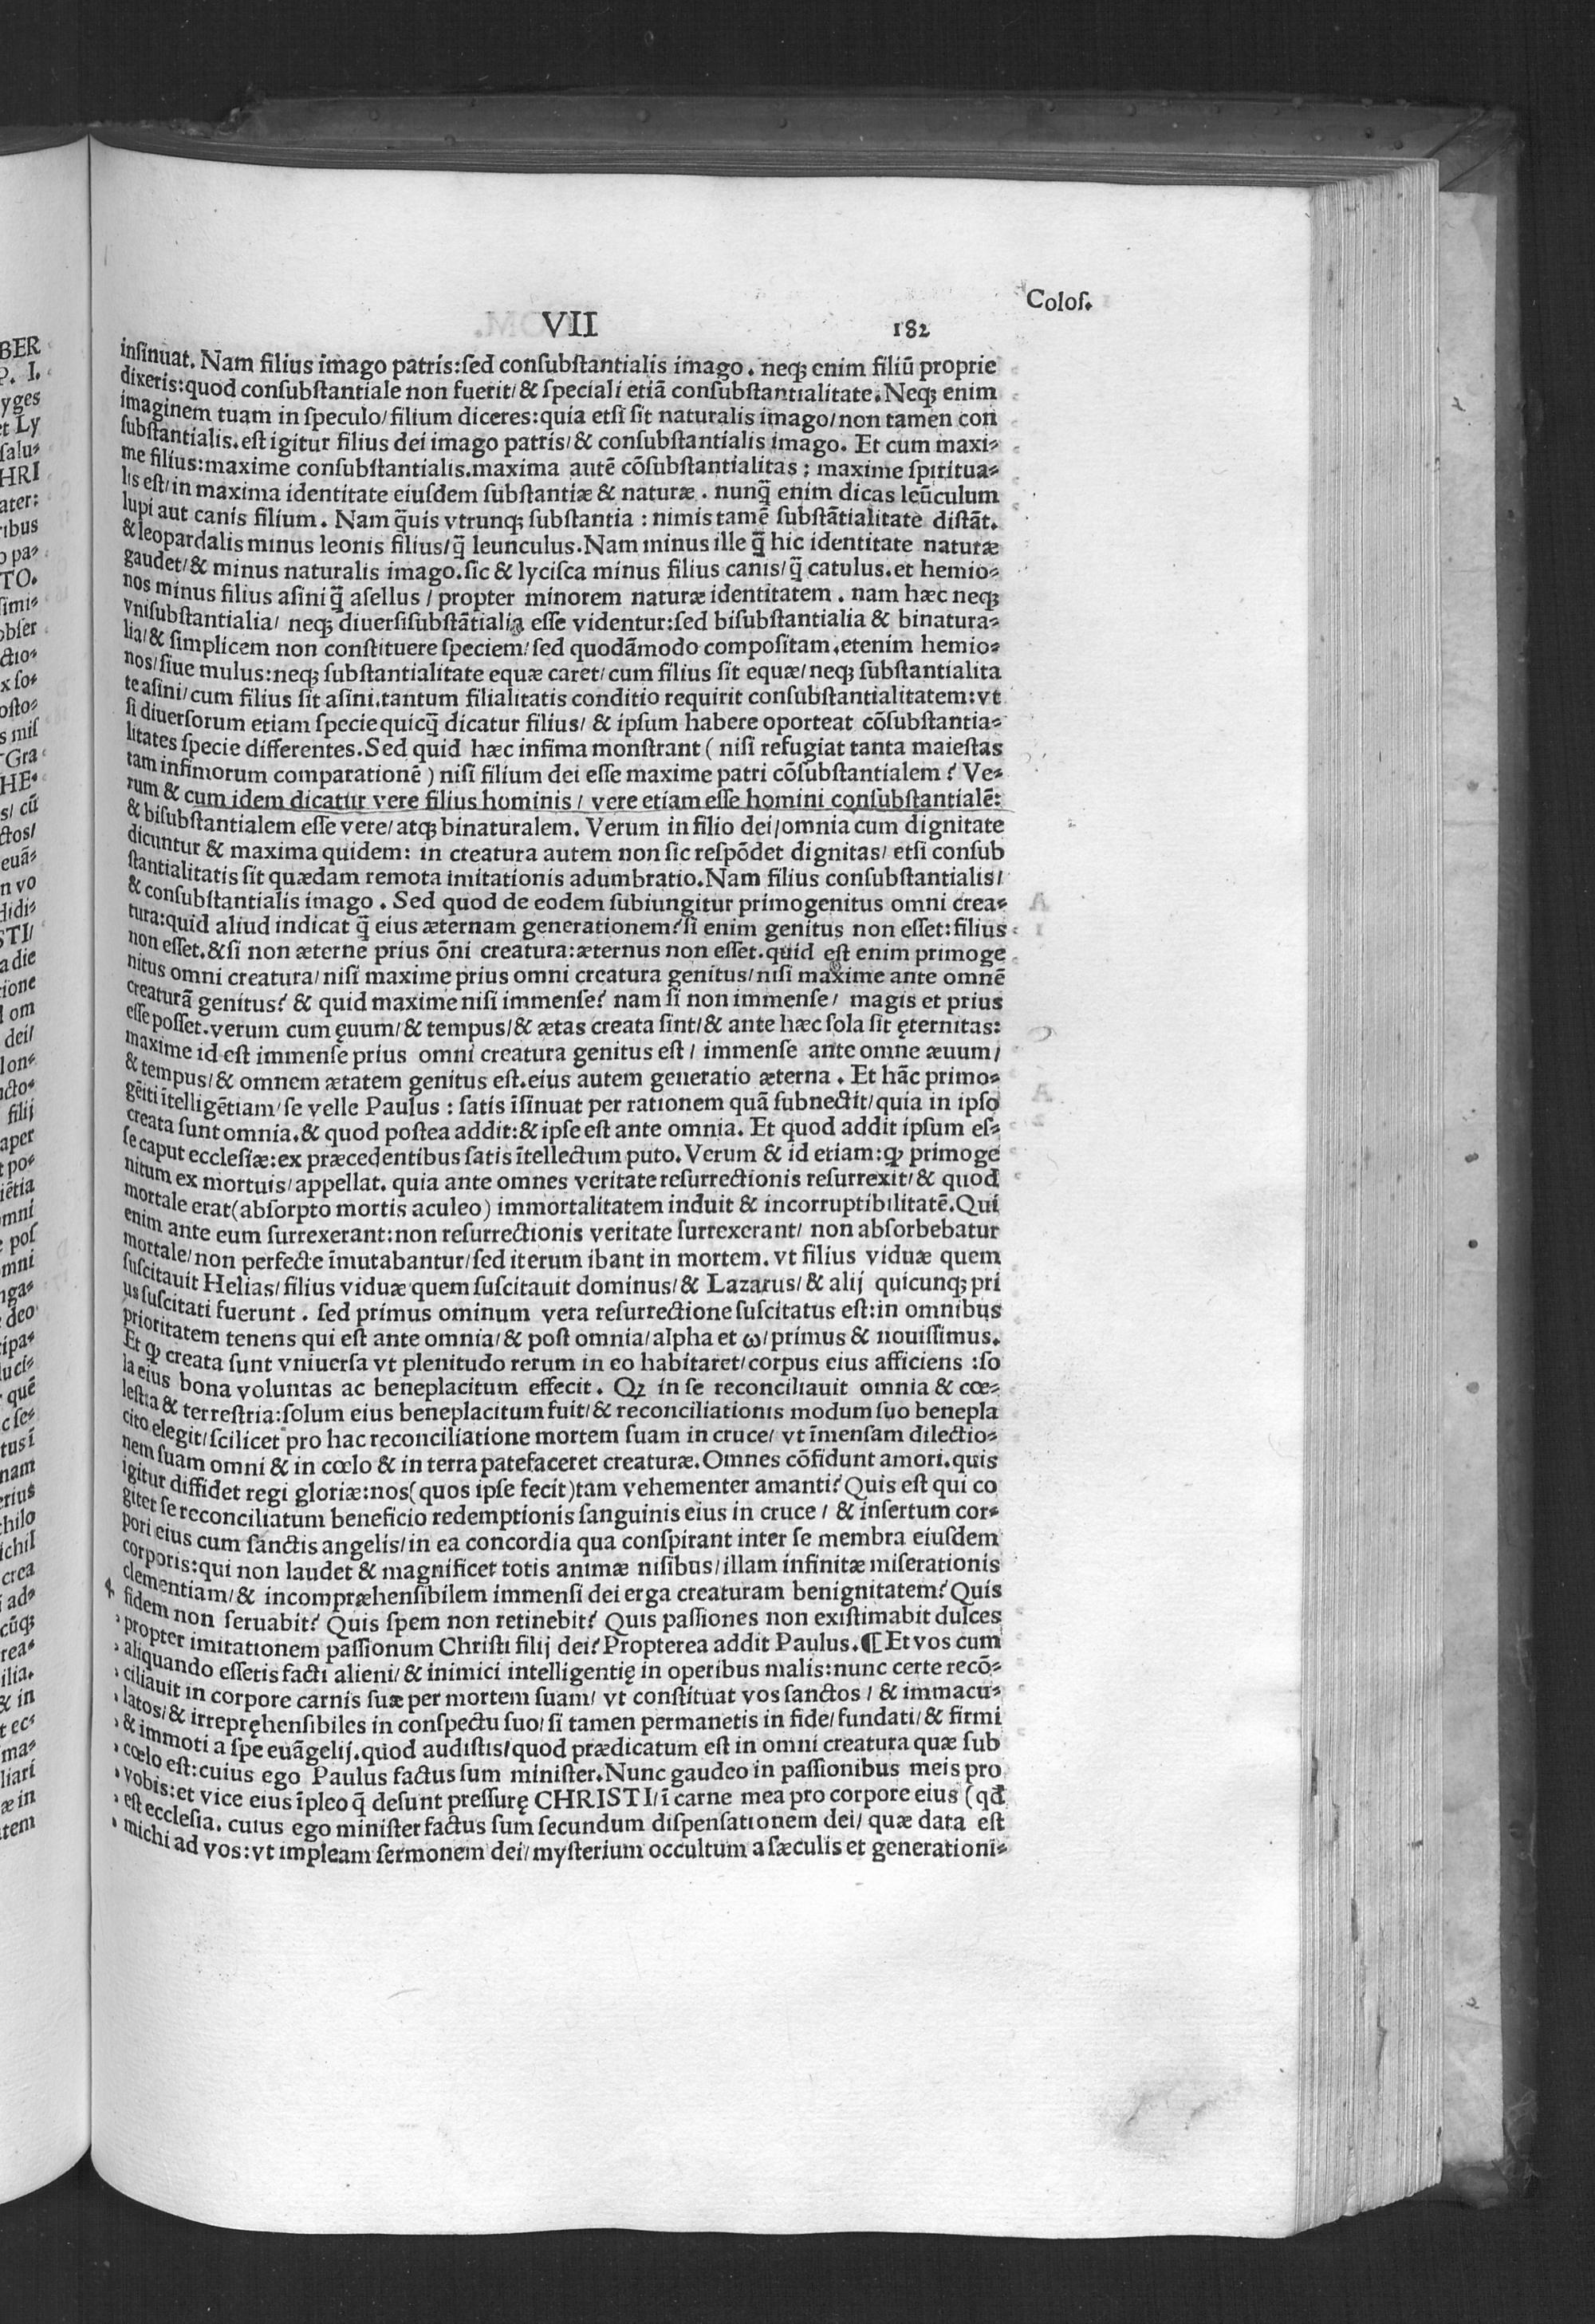 Coloſ.
VII 182
inſinuat. Nam filius imago patris:ſed conſubſtantialis imago. neqꝫ enim filiū proprie
dixeris:quod conſubſtantiale non fuerit/ & ſpeciali etiã conſubſtantialitate. Neqꝫ enim
imaginem tuam in ſpeculo/ filium diceres:quia etſi ſit naturalis imago/ non tamen con
ſubſtantialis. eſt igitur filius dei imago patris/ & conſubſtantialis imago. Et cum maxi⸗
me filius:maxime conſubſtantialis. maxima autẽ cõſubſtantialitas : maxime ſpiritua⸗
lis eſt/ in maxima identitate eiuſdem ſubſtantiæ & naturæ. nunq̃ enim dicas leũculum
lupi aut canis filium. Nam q̃uis vtrunqꝫ ſubſtantia : nimis tamẽ ſubſtãtialitate diſtãt.
& leopardalis minus leonis filius/ q̃ leunculus. Nam minus ille q̃ hic identitate naturæ
gaudet/ & minus naturalis imago. ſic & lyciſca minus filius canis/ q̃ catulus. et hemio⸗
nos minus filius aſini q̃ aſellus / propter minorem naturæ identitatem. nam hæc neqꝫ
vniſubſtantialia/ neqꝫ diuerſiſubſtãtialia eſſe videntur:ſed biſubſtantialia & binatura⸗
lia/ & ſimplicem non conſtituere ſpeciem/ ſed quodãmodo compoſitam. etenim hemio⸗
nos/ ſiue mulus:neqꝫ ſubſtantialitate equæ caret/ cum filius ſit equæ/ neqꝫ ſubſtantialita
te aſini/ cum filius ſit aſini. tantum filialitatis conditio requirit conſubſtantialitatem:vt
ſi diuerſorum etiam ſpecie quicq̃ dicatur filius/ & ipſum habere oporteat cõſubſtantia⸗
litates ſpecie differentes. Sed quid hæc infima monſtrant ( niſi refugiat tanta maieſtas
tam infimorum comparationẽ ) niſi filium dei eſſe maxime patri cõſubſtantialem? Ve⸗
rum & cum idem dicatur vere filius hominis / vere etiam eſſe homini conſubſtantialẽ:
& biſubſtantialem eſſe vere/ atqꝫ binaturalem. Verum in filio dei/ omnia cum dignitate
dicuntur & maxima quidem: in creatura autem non ſic reſpõdet dignitas/ etſi conſub
ſtantialitatis ſit quædam remota imitationis adumbratio. Nam filius conſubſtantialis/
& conſubſtantialis imago. Sed quod de eodem ſubiungitur primogenitus omni crea⸗
tura:quid aliud indicat q̃ eius æternam generationem? ſi enim genitus non eſſet:filius
non eſſet. & ſi non æterne prius õni creatura:æternus non eſſet. quid eſt enim primoge
nitus omni creatura/ niſi maxime prius omni creatura genitus/ niſi maxime ante omnẽ
creaturã genitus? & quid maxime niſi immenſe? nam ſi non immenſe/ magis et prius
eſſe poſſet. verum cum ęuum/ & tempus/ & ætas creata ſint/ & ante hæc ſola ſit ęternitas:
maxime id eſt immenſe prius omni creatura genitus eſt / immenſe ante omne æuum/
& tempus/ & omnem ætatem genitus eſt. eius autem generatio æterna. Et hãc primo⸗
gẽiti ĩtelligẽtiam/ ſe velle Paulus : ſatis ĩſinuat per rationem quã ſubnectit/ quia in ipſo
creata ſunt omnia. & quod poſtea addit:& ipſe eſt ante omnia. Et quod addit ipſum eſ⸗
ſe caput eccleſiæ:ex præcedentibus ſatis ĩtellectum puto. Verum & id etiam:ꝙ primoge
nitum ex mortuis/ appellat. quia ante omnes veritate reſurrectionis reſurrexit/ & quod
mortale erat (abſorpto mortis aculeo) immortalitatem induit & incorruptibilitatẽ. Qui
enim ante eum ſurrexerant:non reſurrectionis veritate ſurrexerant/ non abſorbebatur
mortale/ non perfecte ĩmutabantur/ ſed iterum ibant in mortem. vt filius viduæ quem
ſuſcitauit Helias/ filius viduæ quem ſuſcitauit dominus/ & Lazarus/ & alij quicunqꝫ pri
us ſuſcitati fuerunt. ſed primus ominum vera reſurrectione ſuſcitatus eſt:in omnibus
prioritatem tenens qui eſt ante omnia/ & poſt omnia/ alpha et ω/ primus & nouiſſimus.
Et ꝙ creata ſunt vniuerſa vt plenitudo rerum in eo habitaret/ corpus eius afficiens :ſo
la eius bona voluntas ac beneplacitum effecit. Qꝫ in ſe reconciliauit omnia & cœ⸗
leſtia & terreſtria:ſolum eius beneplacitum fuit/ & reconciliationis modum ſuo benepla
cito elegit/ ſcilicet pro hac reconciliatione mortem ſuam in cruce/ vt ĩmenſam dilectio⸗
nem ſuam omni & in cœlo & in terra patefaceret creaturæ. Omnes cõfidunt amori. quis
igitur diffidet regi gloriæ:nos (quos ipſe fecit) tam vehementer amanti? Quis eſt qui co
gitet ſe reconciliatum beneficio redemptionis ſanguinis eius in cruce / & inſertum cor⸗
pori eius cum ſanctis angelis/ in ea concordia qua conſpirant inter ſe membra eiuſdem
corporis:qui non laudet & magnificet totis animæ niſibus/ illam infinitæ miſerationis
clementiam/ & incompræhenſibilem immenſi dei erga creaturam benignitatem? Quis
fidem non ſeruabit? Quis ſpem non retinebit? Quis paſſiones non exiſtimabit dulces
propter imitationem paſſionum Chriſti filij dei? Propterea addit Paulus. ¶ Et vos cum
aliquando eſſetis facti alieni/ & inimici intelligentię in operibus malis:nunc certe recõ⸗
ciliauit in corpore carnis ſuæ per mortem ſuam/ vt conſtituat vos ſanctos / & immacu⸗
latos/ & irrepręhenſibiles in conſpectu ſuo/ ſi tamen permanetis in fide/ fundati/ & firmi
& immoti a ſpe euãgelij. quod audiſtis/ quod prædicatum eſt in omni creatura quæ ſub
cœlo eſt:cuius ego Paulus factus ſum miniſter. Nunc gaudeo in paſſionibus meis pro
vobis:et vice eius ĩpleo q̃ deſunt preſſurę CHRISTI/ ĩ carne mea pro corpore eius (qđ
eſt eccleſia. cuius ego miniſter factus ſum ſecundum diſpenſationem dei/ quæ data eſt
michi ad vos:vt impleam ſermonem dei/ myſterium occultum a ſæculis et generationi⸗